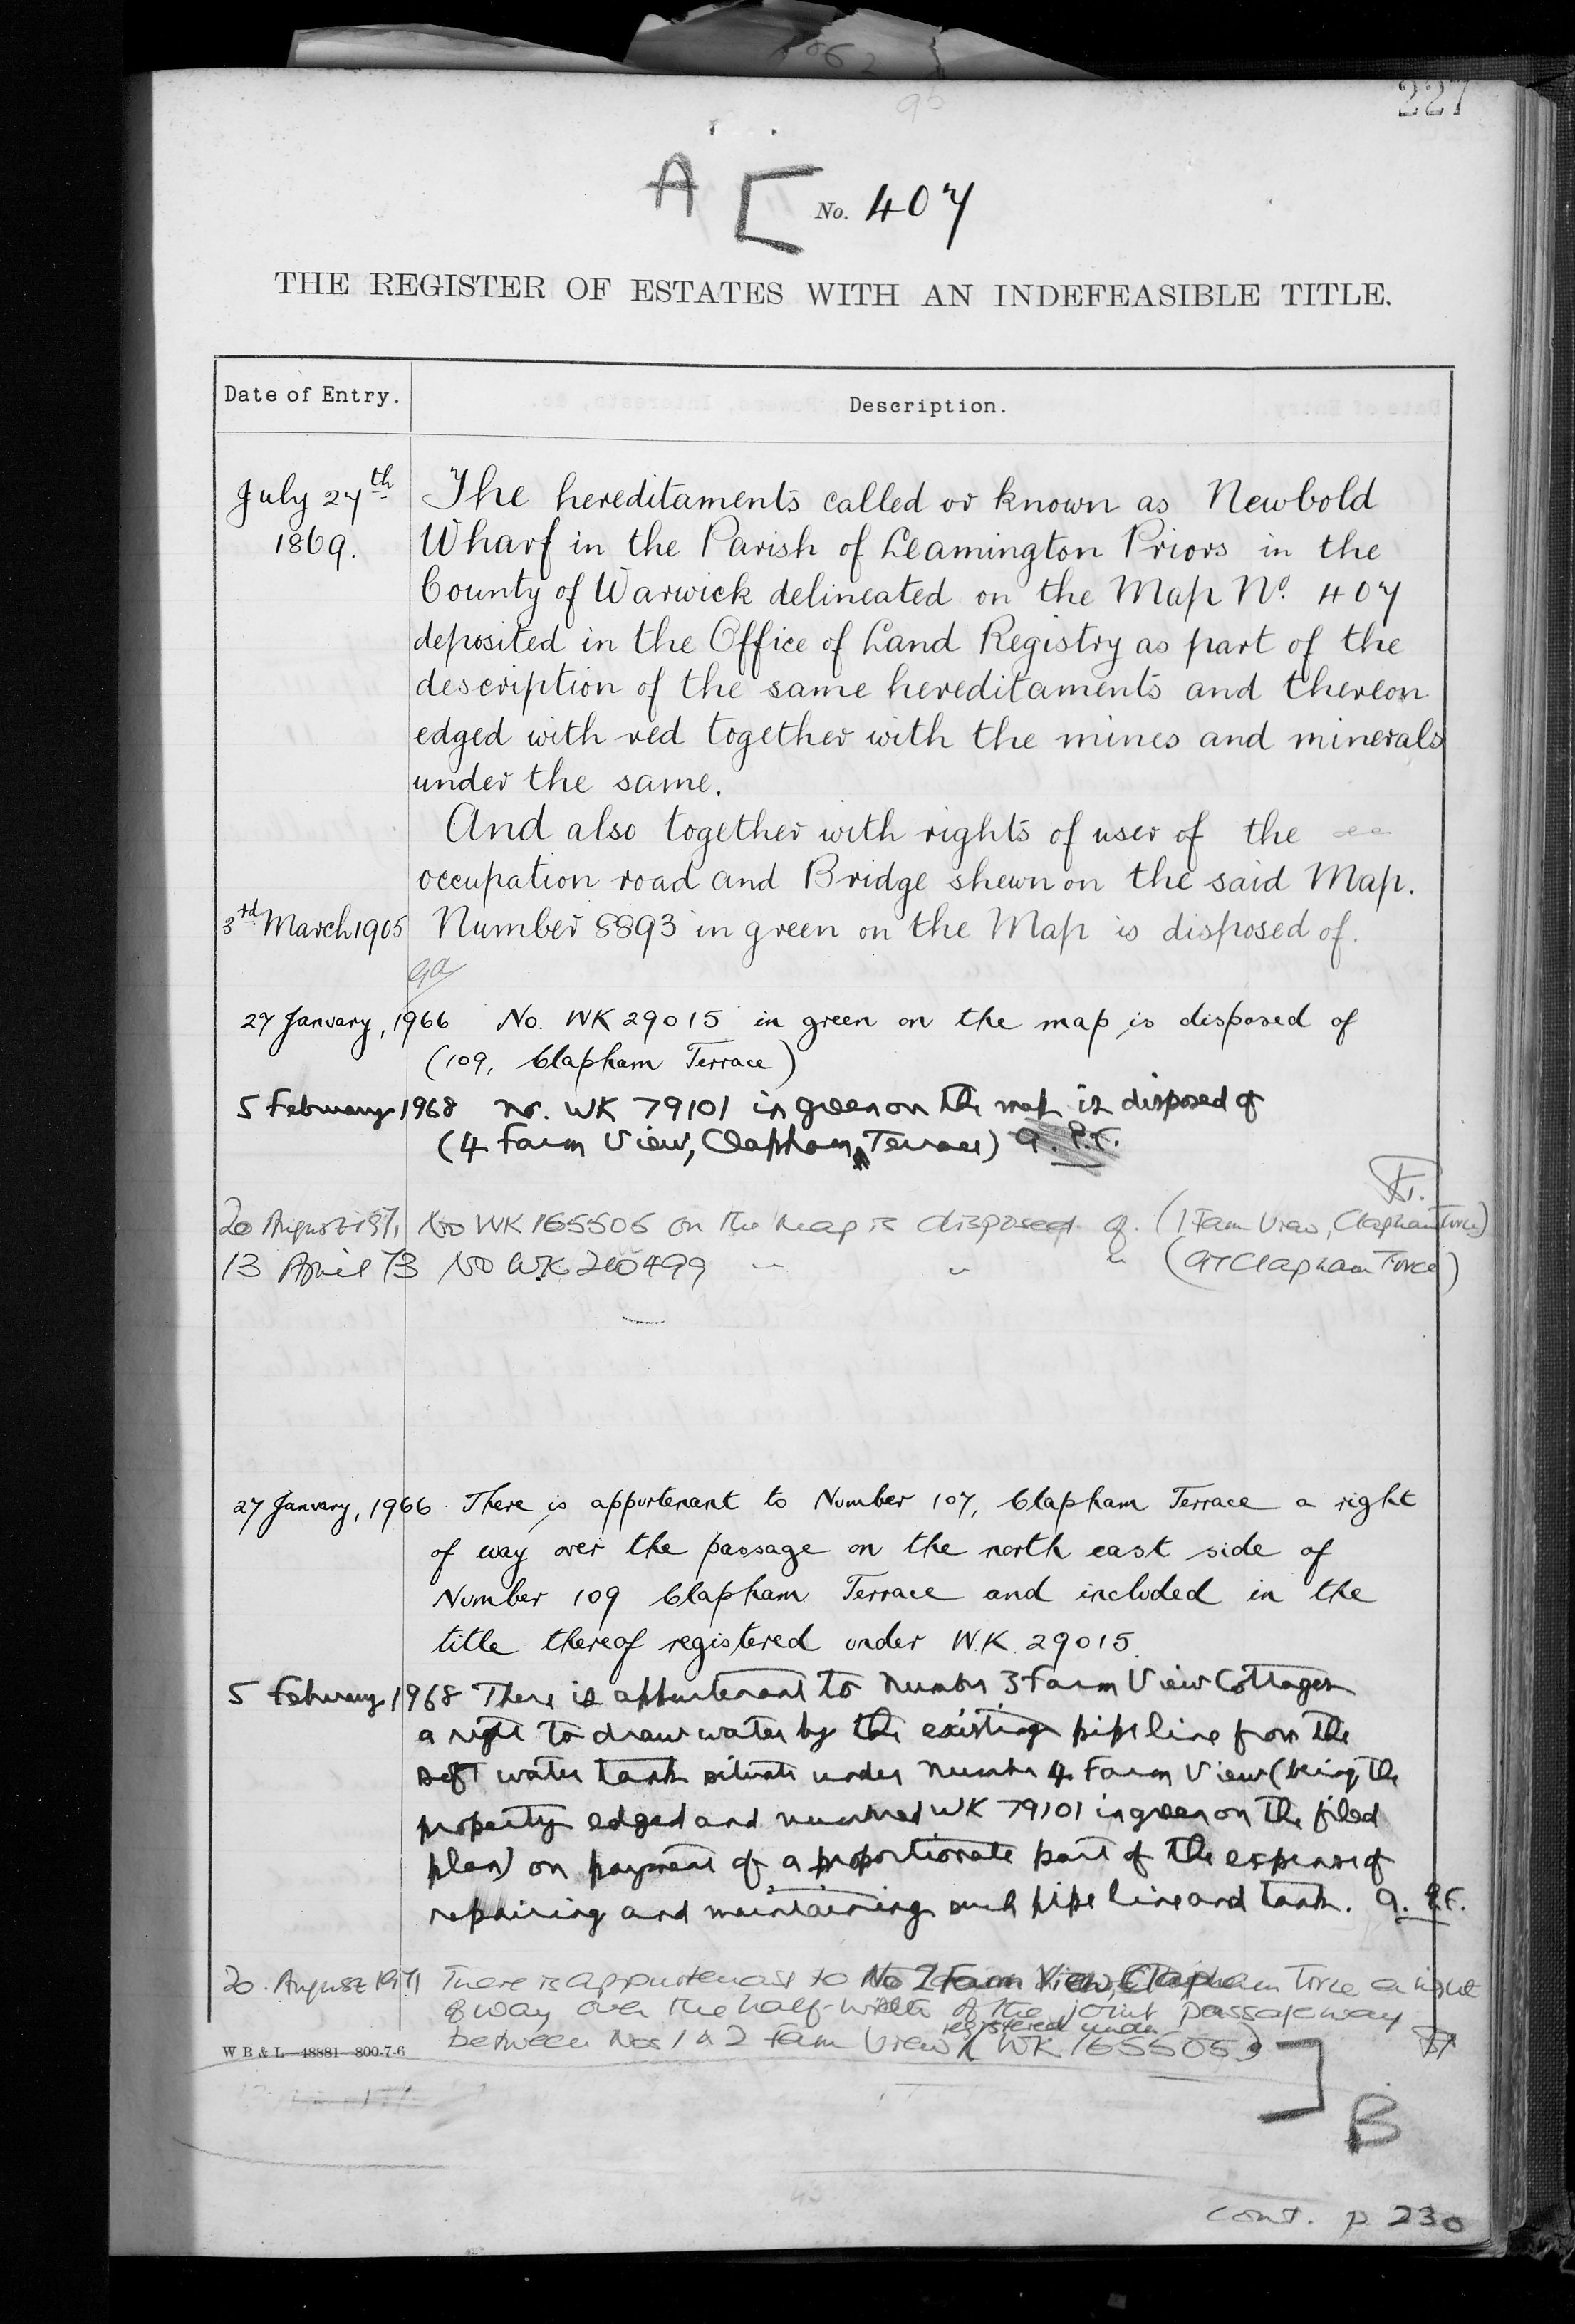 227
A [ No. 407
THE REGISTER OF ESTATES WITH AN INDEFEASIBLE TITLE.
Date of Entry.
Description.
July 27th 1869.
The hereditaments called or known as Newbold
Wharf in the Parish of Leamington Priors in the
County of Warwick delineated on the Map No. 407
deposited in the Office of Land Registry as part of the
description of the same hereditaments and thereon
edged with red together with the mines and minerals
under the same.
And also together with rights of user of the
occupation road and Bridge shewn on the said Map.
3rd March 1905 Number 8893 in green on the Map is disposed of.
27 January, 1966 No. WK 29015 in green on the map is disposed of
(109, Clapham Terrace)
5 February 1968 No. WK 79101 in green on the map is disposed of
(4 Farm View, Clapham Terrace) a. P.F.
20 August 1971 No WK 165505 on the map is disposed of. (1 Farm View, Clapham Terrce)
13 April 73 No WK 210499 " " " (97 Clapham Terrce)
27 January, 1966. There is appurtenant to Number 107, Clapham Terrace a right
of way over the passage on the north east side of
Number 109 Clapham Terrace and included in the
title thereof registered under W.K. 29015.
5 February 1968 There is appurtenant to Number 3 Farm View Cottages
a right to draw water by the existing pipe line from the
soft water tank situate under Number 4 Farm View (being the
property edged and numbered WK 79101 in green on the filed
plan) on payment of a proportionate part of the expense of
repairing and maintaining such pipe line and tank. a. P.F.
20 August 1971 There is appurtenant to No 2 Farm View, Clapham Terrce a right
of way over the half-width of the joint passageway
registered under
between Nos 1 & 2 Farm View (WK 165505) ]
W B & L—48881—800-7-6
B
cont. p 230